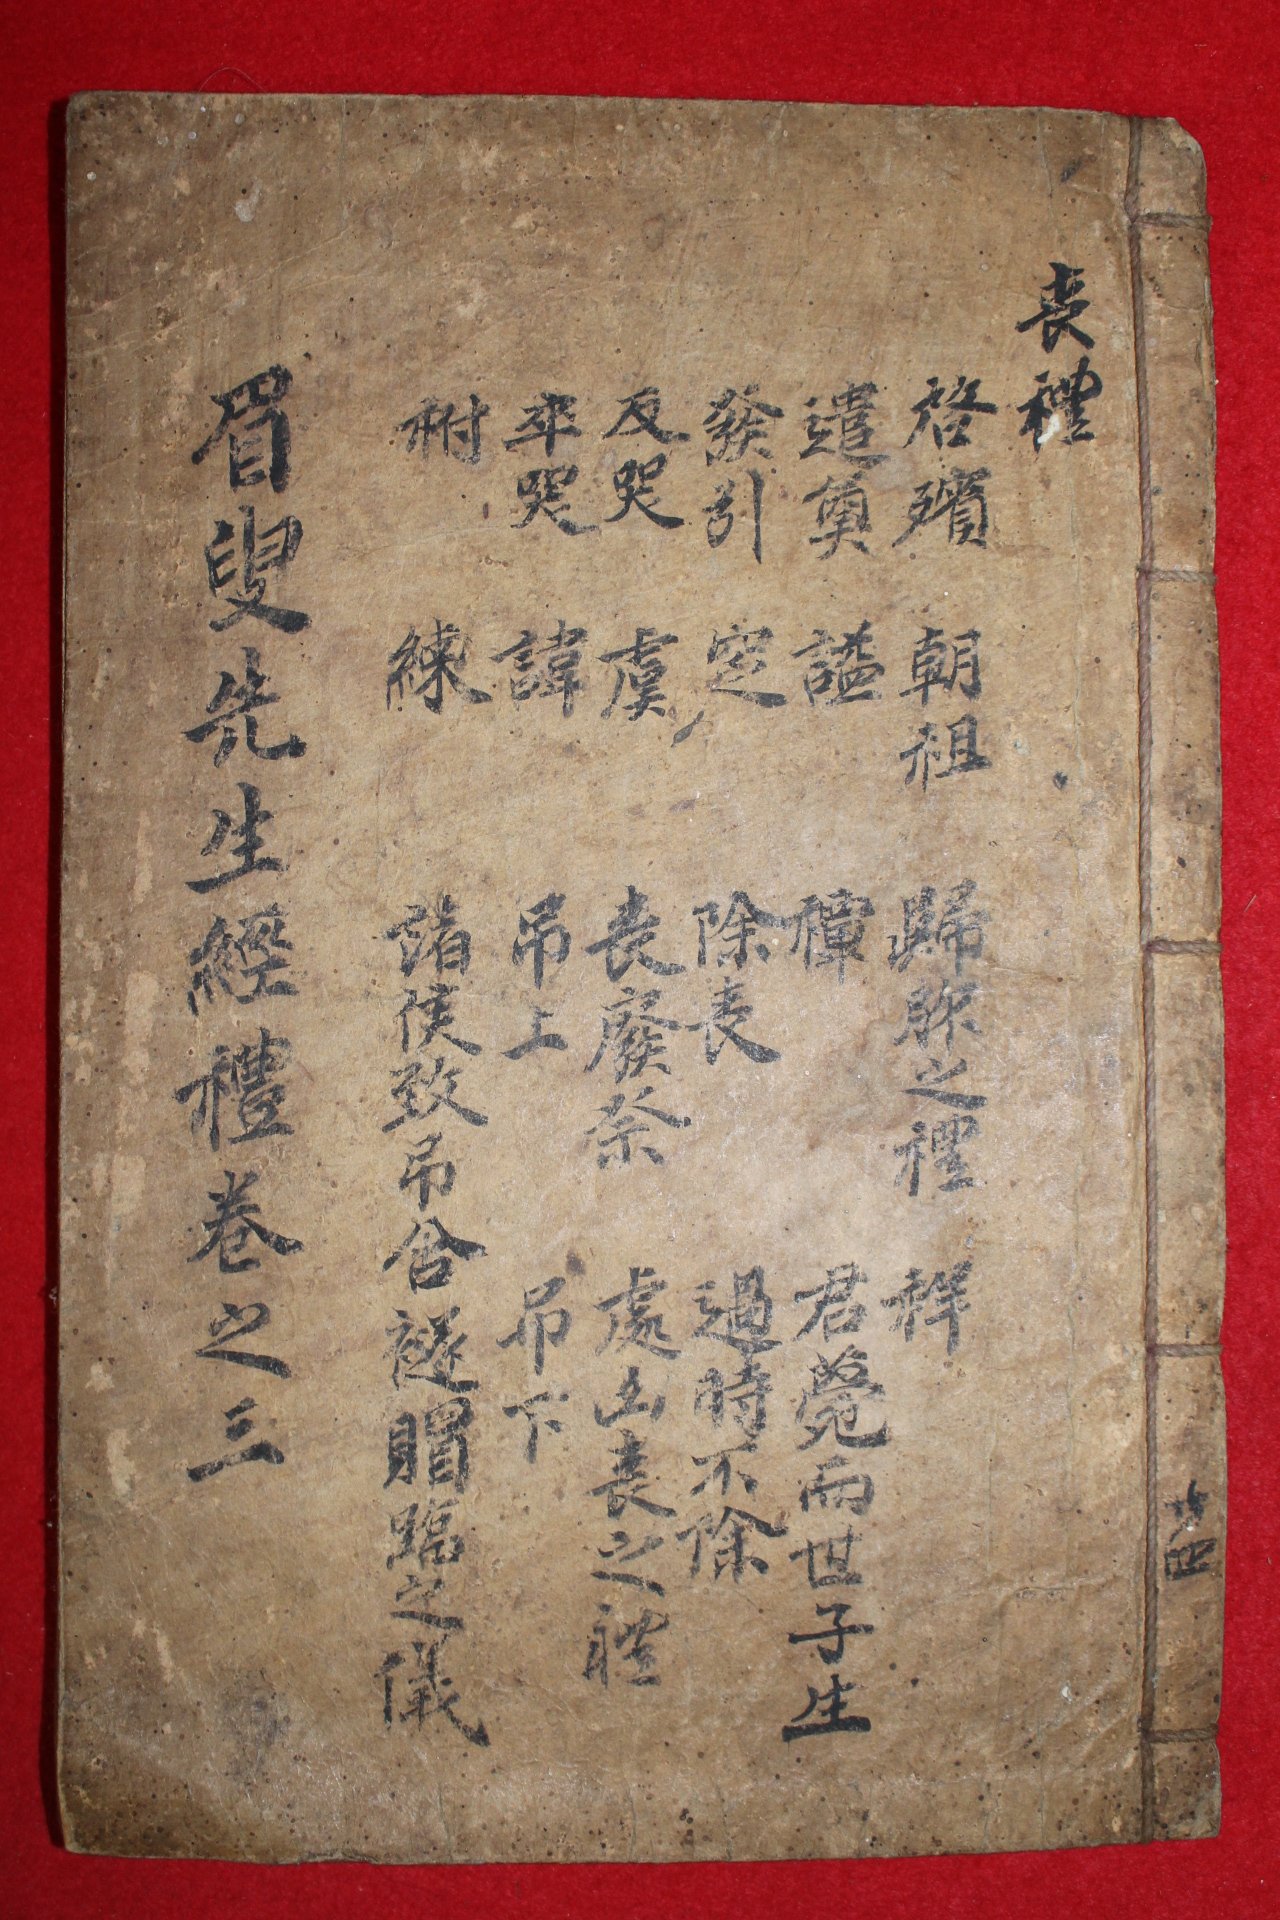 喪禮
啓殯 朝祖 歸脤之禮 祥
遣奠 謚 禫 君薨而世子生
發引 窆 除喪 過時不除
反哭 虞 喪廢祭 處凶喪之禮
卒哭 諱 吊上 吊下
祔 練 諸侯致吊含襚賵臨之儀
眉叟先生經禮卷之三
共四